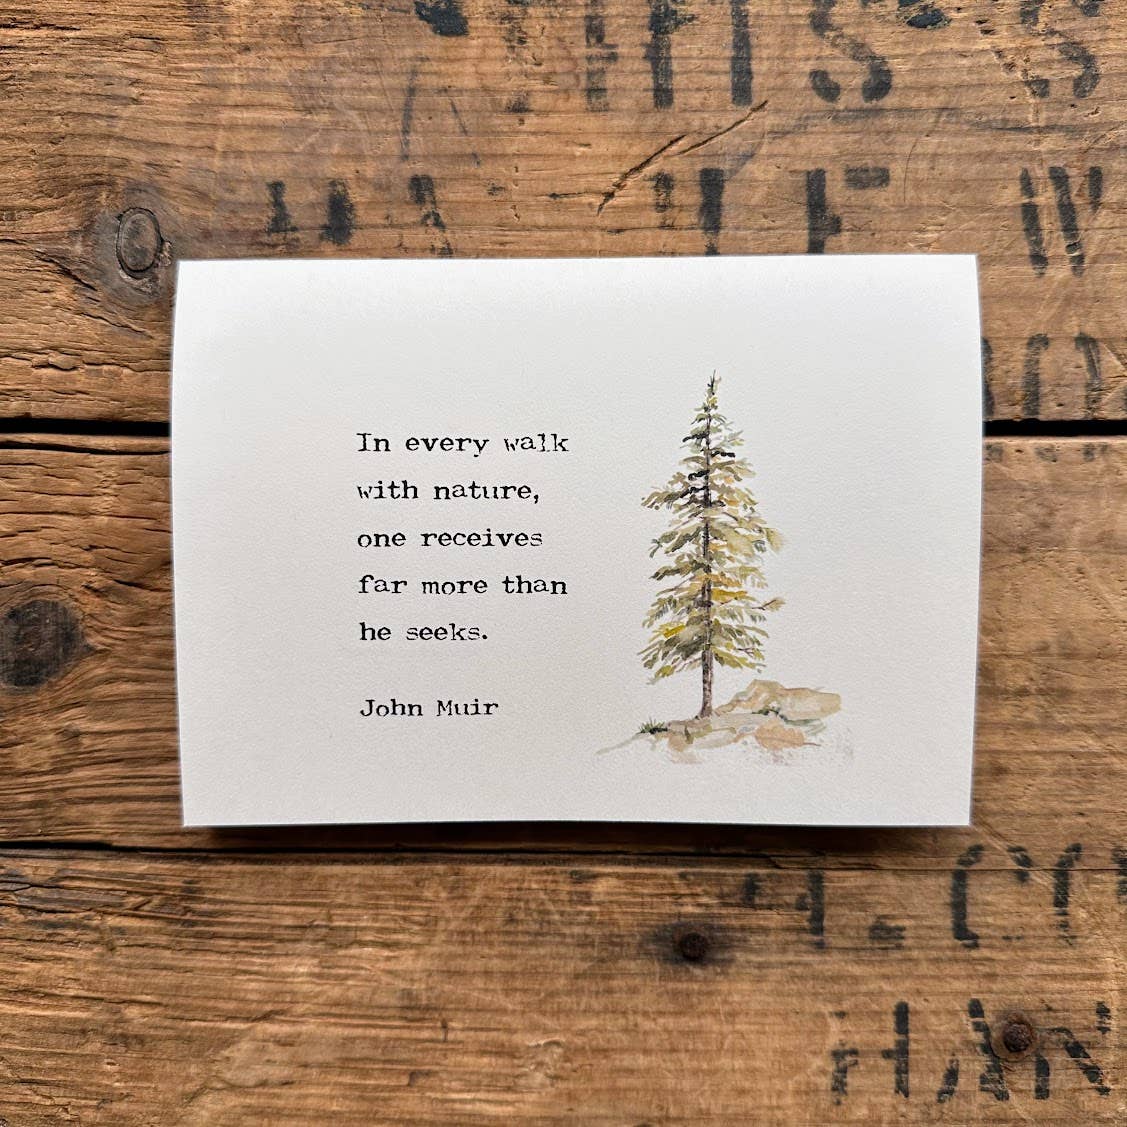 In every walk
with nature,
one receives
far more than
he seeks.
John Muir